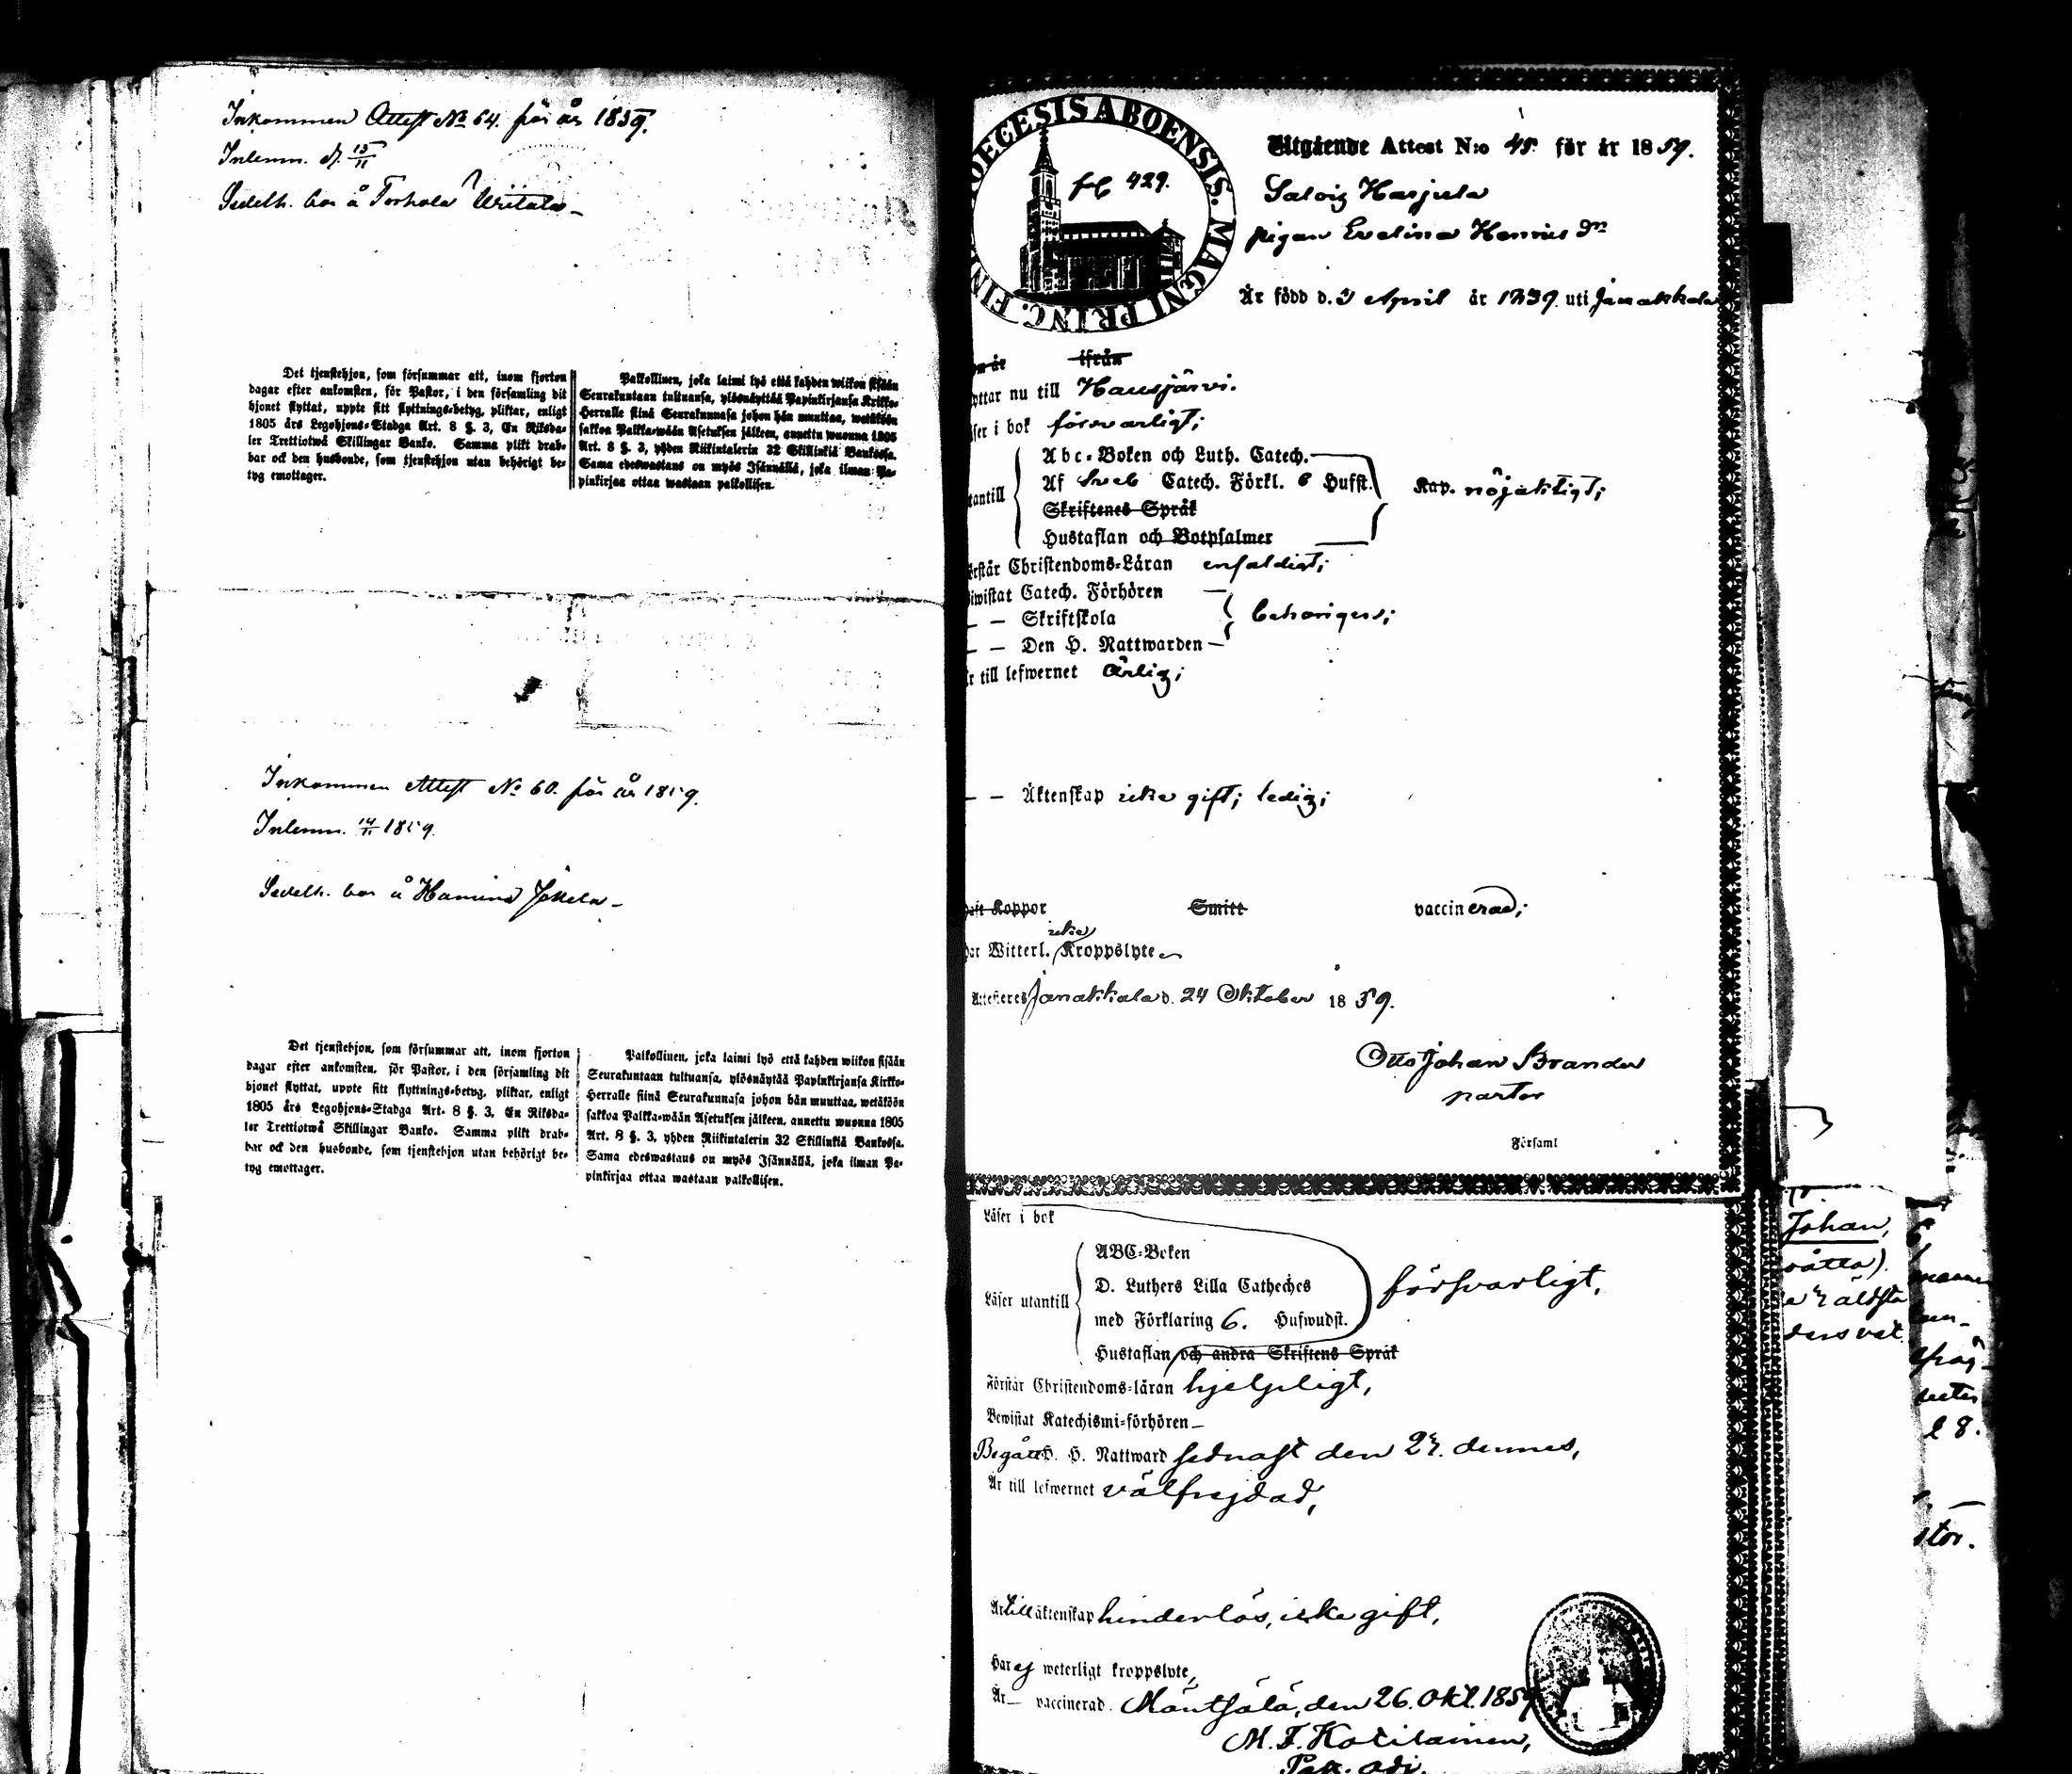 Inkommen Attest No 64. för år 1859.
Inlemn. d. 15/11
Sedelh. bor å Torhola Uritala
Det tjenstehjon, som försummar att, inom fjorton
dagar efter ankomsten, för Pastor, i den församling dit
hjonet flyttat, uppte sitt flyttnings-betyg, pliktar, enligt
1805 års Legohjons-Stadga Art. 8 §. 3, En Riksda-
ler Trettiotwå Skillingar Banko. Samma plikt drab-
bar ock den husbonde, som tjenstehjon utan behörigt be-
tyg emottager.
Palkollinen, joka laimi lyö että kahden wiikon sisään
Seurakuntaan tultuansa, ylösnäyttää Papinkirjansa Kirkko-
Herralle siinä Seurakunnasa johon hän muuttaa, wetäköön
sakkoa Palkka-wään Asetuksen jälkeen, annettu wuonna 1805
Art. 8 §. 3, yhden Riikintalerin 32 Skillinkiä Bankossa.
Sama edeswastaus on myös Isännällä, joka ilman Pa-
pinkirjaa ottaa wastaan palkollisen.
Inkommen Attest No 60. för år 1859.
Inlemn. 14/11 1859.
Sedelh. bor å Hamina Jokela
Det tjenstehjon, som försummar att, inom fjorton
dagar efter ankomsten, för Pastor, i den församling dit
hjonet flyttat, uppte sitt flyttnings-betyg, pliktar, enligt
1805 års Legohjons-Stadga Art. 8 §. 3, En Riksda-
ler Trettiotwå Skillingar Banko. Samma plikt drab-
bar ock den husbonde, som tjenstehjon utan behörigt be-
tyg emottager.
Palkollinen, joka laimi lyö että kahden wiikon sisään
Seurakuntaan tultuansa, ylösnäytää Papinkirjansa Kirkko-
Herralle siinä Seurakunnasa johon hän muuttaa, wetäköön
sakkoa Palkka-wään Asetuksen jälkeen, annettu wuonna 1805
Art. 8 §. 3, yhden Riikintalerin 32 Skillinkiä Bankossa.
Sama edeswastaus on myös Isännällä, joka ilman Pa-
pinkirjaa ottaa wastaan palkollisen.
DIOECESIS ABOENSIS. MAGNI PRINC. FIN
429.
Utgående Attest N:o 45. för år 1859.
Saloig Harjula
pigan Evelina Henricsdn
Är född d. 3 April år 1839 uti Janakkala
ifrån
yttar nu till Hausjärvi.
äser i bok försvarligt;
utantill
Abc-Boken och Luth. Catech.
Af Sveb Catech. Förkl. 6 Hufst.
Skriftenes Språk
Hustaflan och Botpsalmer
Kap. nöjaktigt;
örstår Christendoms-Läran enfaldigt;
iwistat Catech. Förhören
— — Skriftskola
— — Den H. Nattwarden
behörigen;
r till lefwernet ärlig;
— — Äktenskap icke gift; ledig;
haft Koppor Smitt vaccinerad;
har Witterl. icke Kroppslyte
Attesteres Janakkala d. 24 Oktober 1859.
Otto Johan Brander
pastor
Församl
Läser i bok
Läser utantill
ABC-Boken
D. Luthers Lilla Catheches
med Förklaring 6. Hufwudst.
Hustaflan och andra Skriftens Språk
försvarligt,
Förstår Christendoms-läran hjelpligt,
Bewistat Katechismi-förhören —
Begått H. H. Nattward sednast den 24. dennes,
Är till lefwernet välfrejdad,
Är till äktenskap hinderlös, icke gift,
Har ej weterligt kroppslyte,
Är — vaccinerad. Mäntsälä, den 26. Okt. 1859
M. F. Kotilainen,
Past. adj.
Johan,